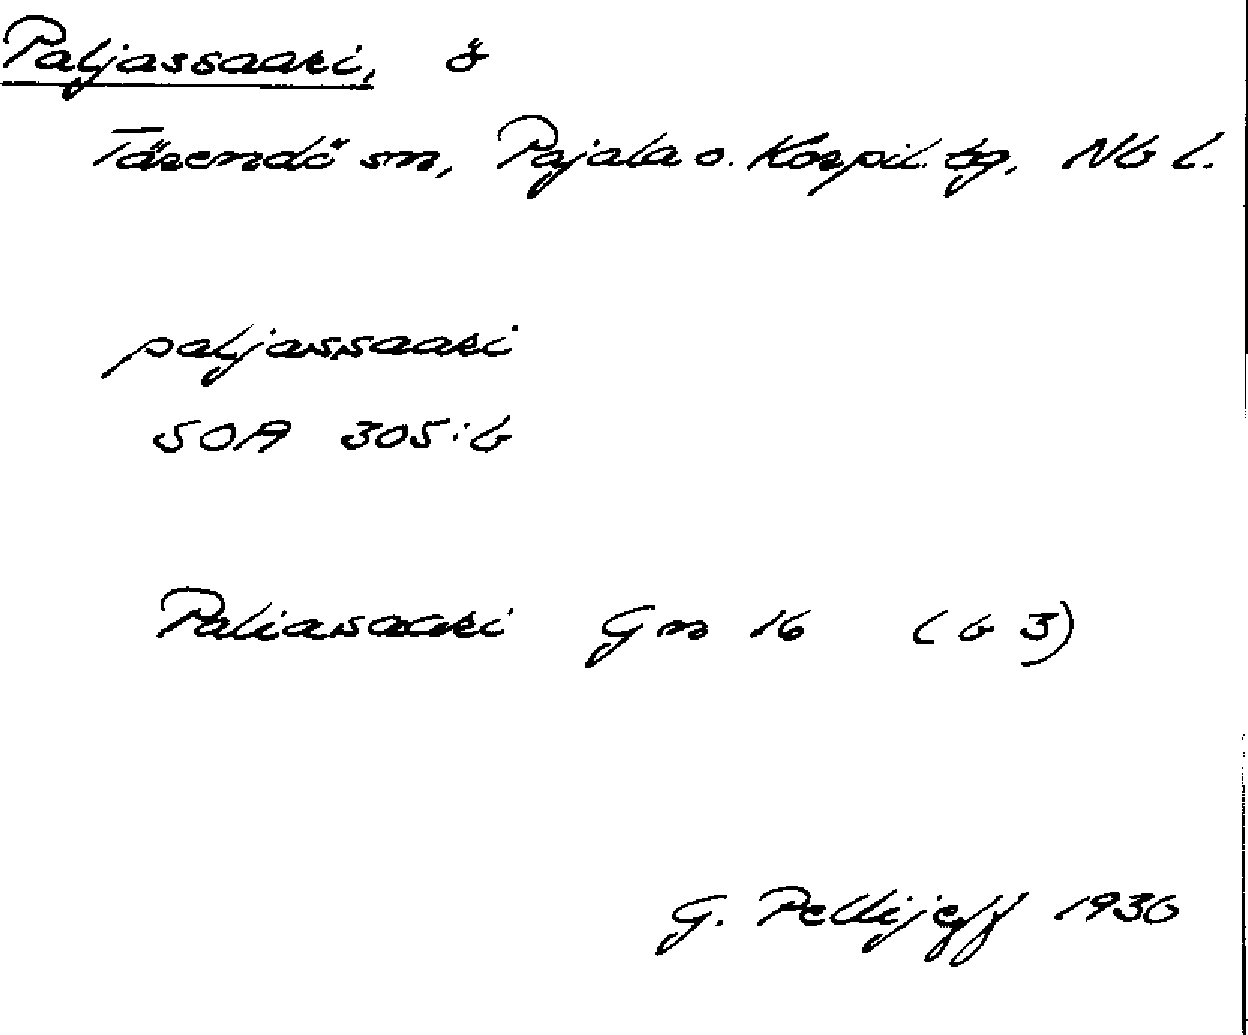 Paljassaari, ö
Tärendö sn, Pajala o. Korpil. tg. Nb l.
paljassaari
SOA 305:6
Paliasaari Gm 16 (b 3)
G. Pellijeff 1936